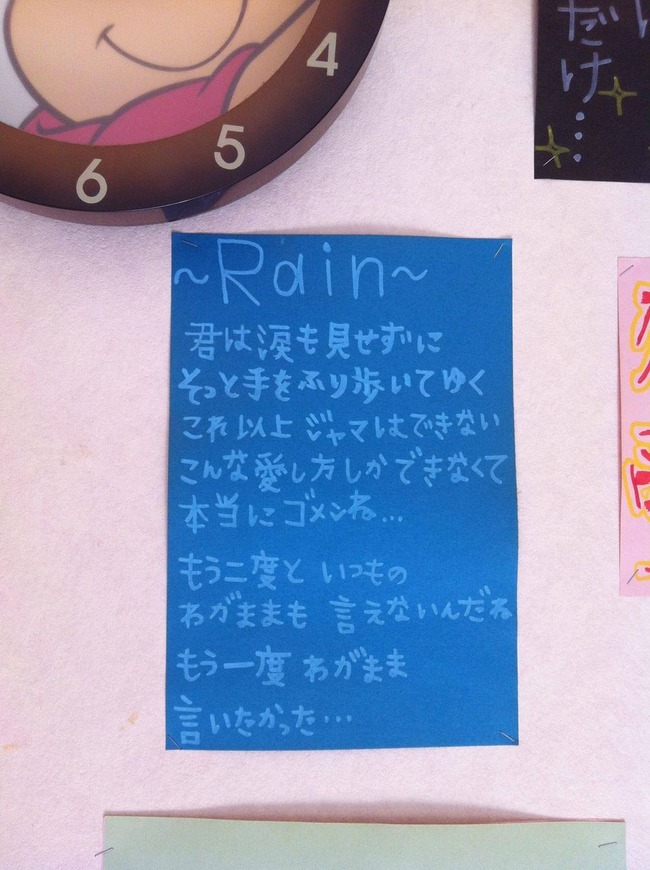 4
5
6
だけ…
~Rain~
君は涙も見せずに
そっと手をふり歩いてゆく
これ以上 ジャマはできない
こんな愛し方しかできなくて
本当にゴメンね…
もう二度と いつもの
わがままも 言えないんだね
もう一度 わがまま
言いたかった…